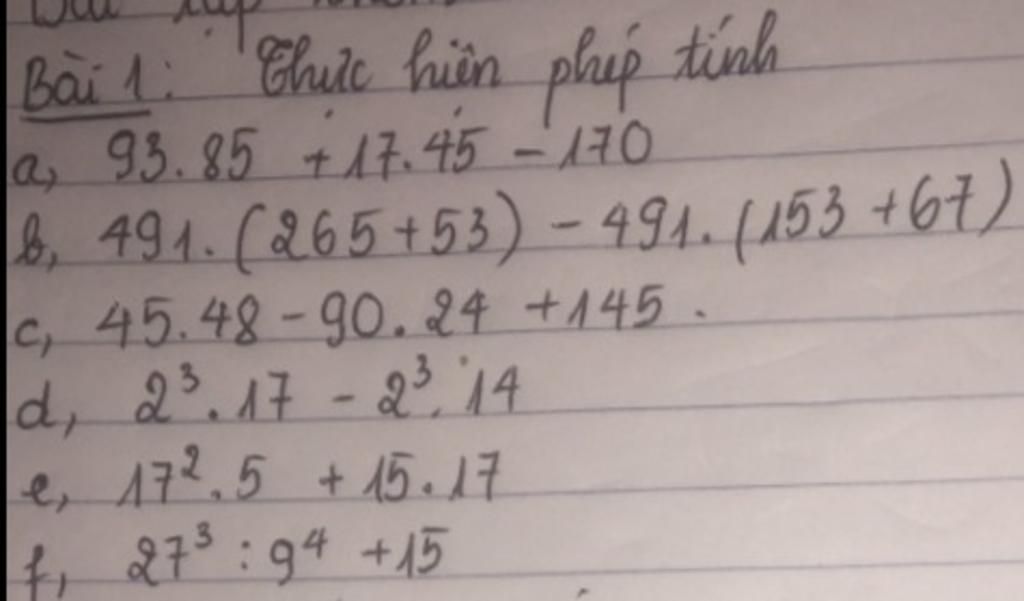 Bài 1: Thực hiện phép tính
a, 93.85 + 17.45 - 170
b, 491.(265+53) - 491.(153+67)
c, 45.48 - 90.24 + 145.
d, 2³.17 - 2³.14
e, 17².5 + 15.17
f, 27³ : 9⁴ + 15